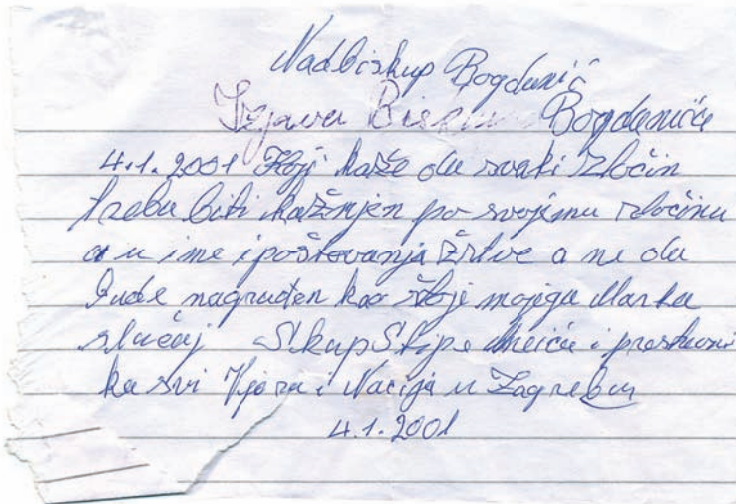 Nadbiskup Bogdanić
Izjava Biskupa Bogdanića
4.1.2001 Koji kaže da svaki zločin
treba biti kažnjen po svojemu zločinu
a u ime i poštovanja žrtve a ne da
bude nagrađen kao što je mojega Marka
slučaj Skup Stipe i
ka svi Vjera i Nacija u Zagrebu
4.1.2001